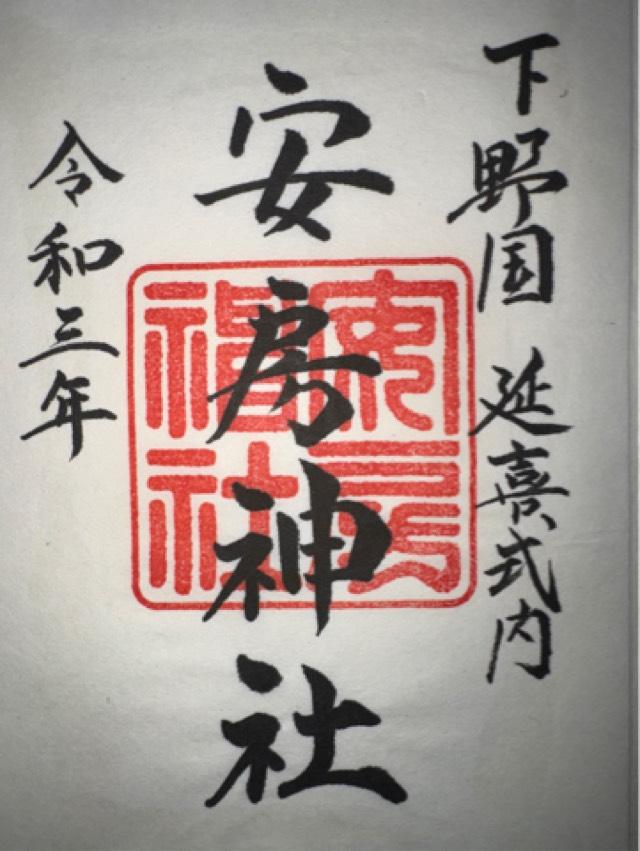 下野国 延喜式内
安房神社
令和三年
安房神社